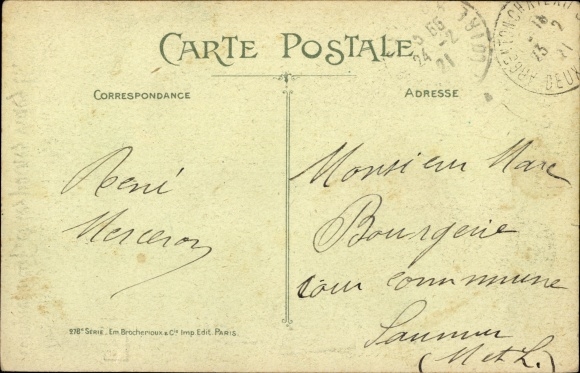 CARTE POSTALE
CORRESPONDANCE
ADRESSE
René
Merceron
Monsieur Marc
Bourgerie
cour commune
Saumur
(M et L)
278e SÉRIE, Em. Brocherioux & Cie Imp. Edit. PARIS.
24 -2
21
13 2
21